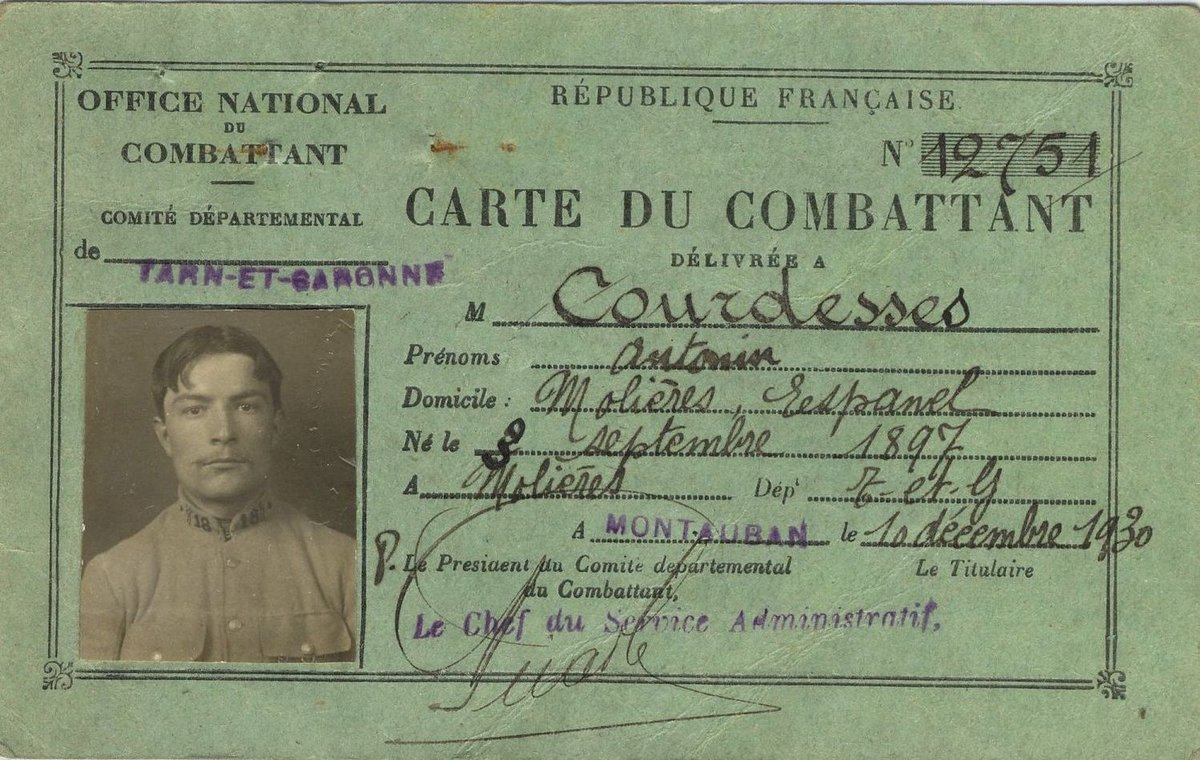 OFFICE NATIONAL
DU
COMBATTANT
COMITÉ DÉPARTEMENTAL
de TARN-ET-GARONNE
RÉPUBLIQUE FRANÇAISE
N° 12751
CARTE DU COMBATTANT
DÉLIVRÉE A
M Courdesses
Prénoms Antonin
Domicile : Molières, Espanel
Né le septembre 1897
A Molières Dépt T. et G
A MONTAUBAN le 10 décembre 1930
P. Le President du Comité departemental
du Combattant,
Le Titulaire
Le Chef du Service Administratif,
18 18